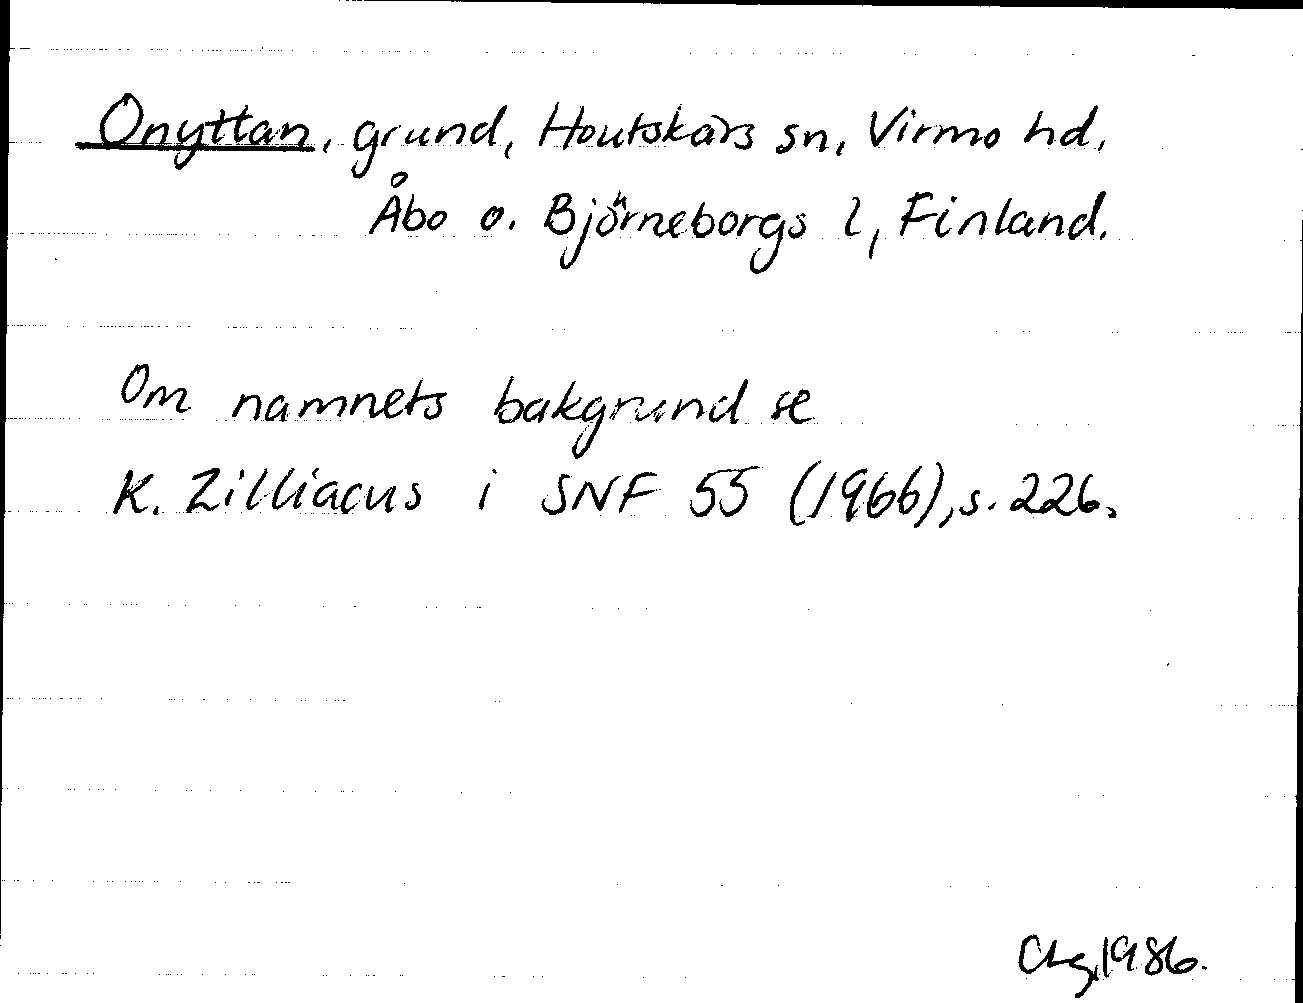 Onyttan, grund, Houtskärs sn, Virmo hd,
Åbo o. Björneborgs l, Finland.
Om namnets bakgrund se
K. Zilliacus i SNF 55 (1966), s. 226.
1986.